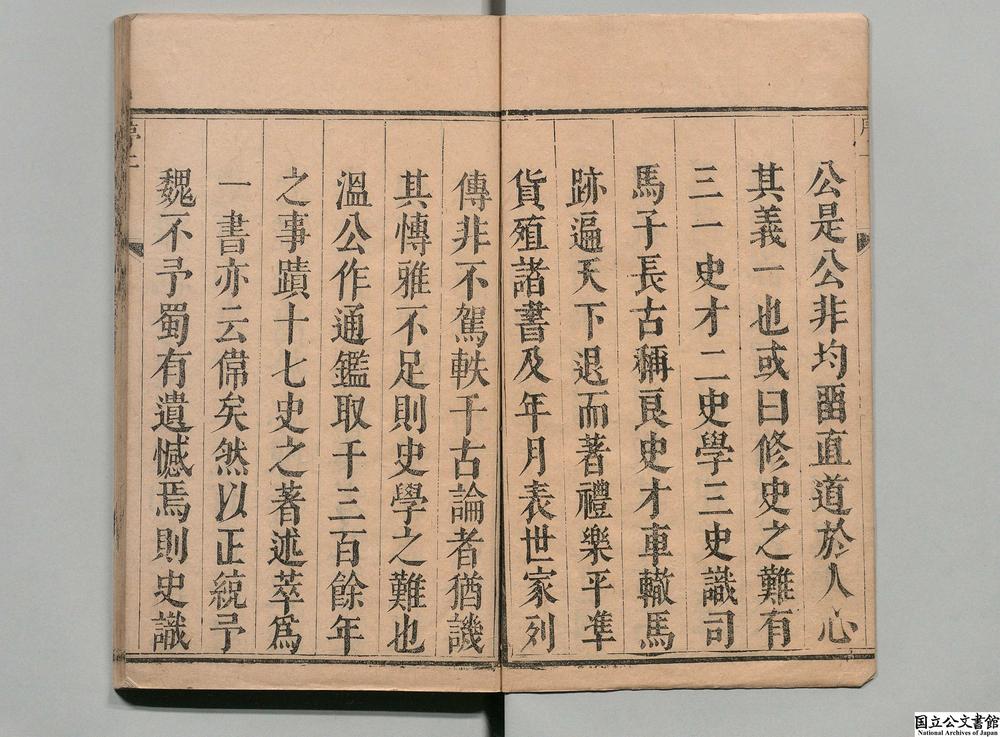 公是公非均畱直道於人心
其義一也或曰修史之難有
三一史才二史學三史識司
馬子長古稱良史才車轍馬
跡遍天下退而著禮樂平準
貨殖諸書及年月表世家列
傳非不駕軼千古論者猶譏
其慱雅不足則史學之難也
溫公作通鑑取千三百餘年
之事蹟十七史之著述萃爲
一書亦云偹矣然以正統予
魏不予蜀有遺憾焉則史識
国立公文書館
National Archives of Japan